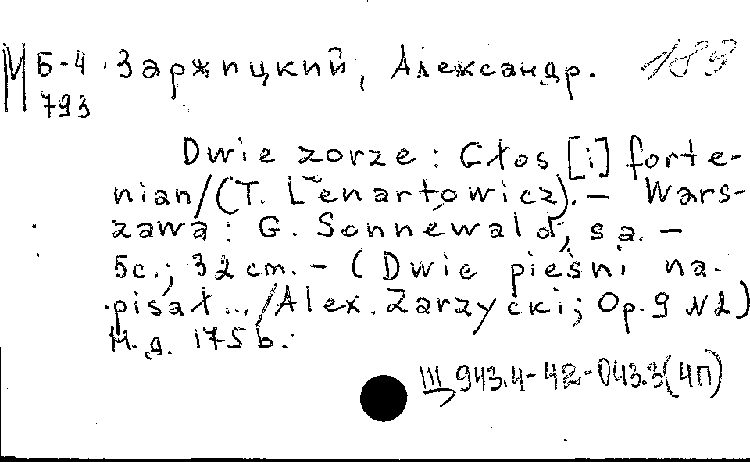 М Б-4 Заржицкий, Александр. 189
793
Dwie zorze: Głos [i] forte-
nian/(T. Lenartowicz). – Wars-
zawa: G. Sennewald, s.a. –
5c.; 32 cm. – (Dwie pieśni na-
pisał.../Alex. Zarzycki; Op. 9 №2)
Н.д. 175 b.
Щ943.4-42-043.3(4П)